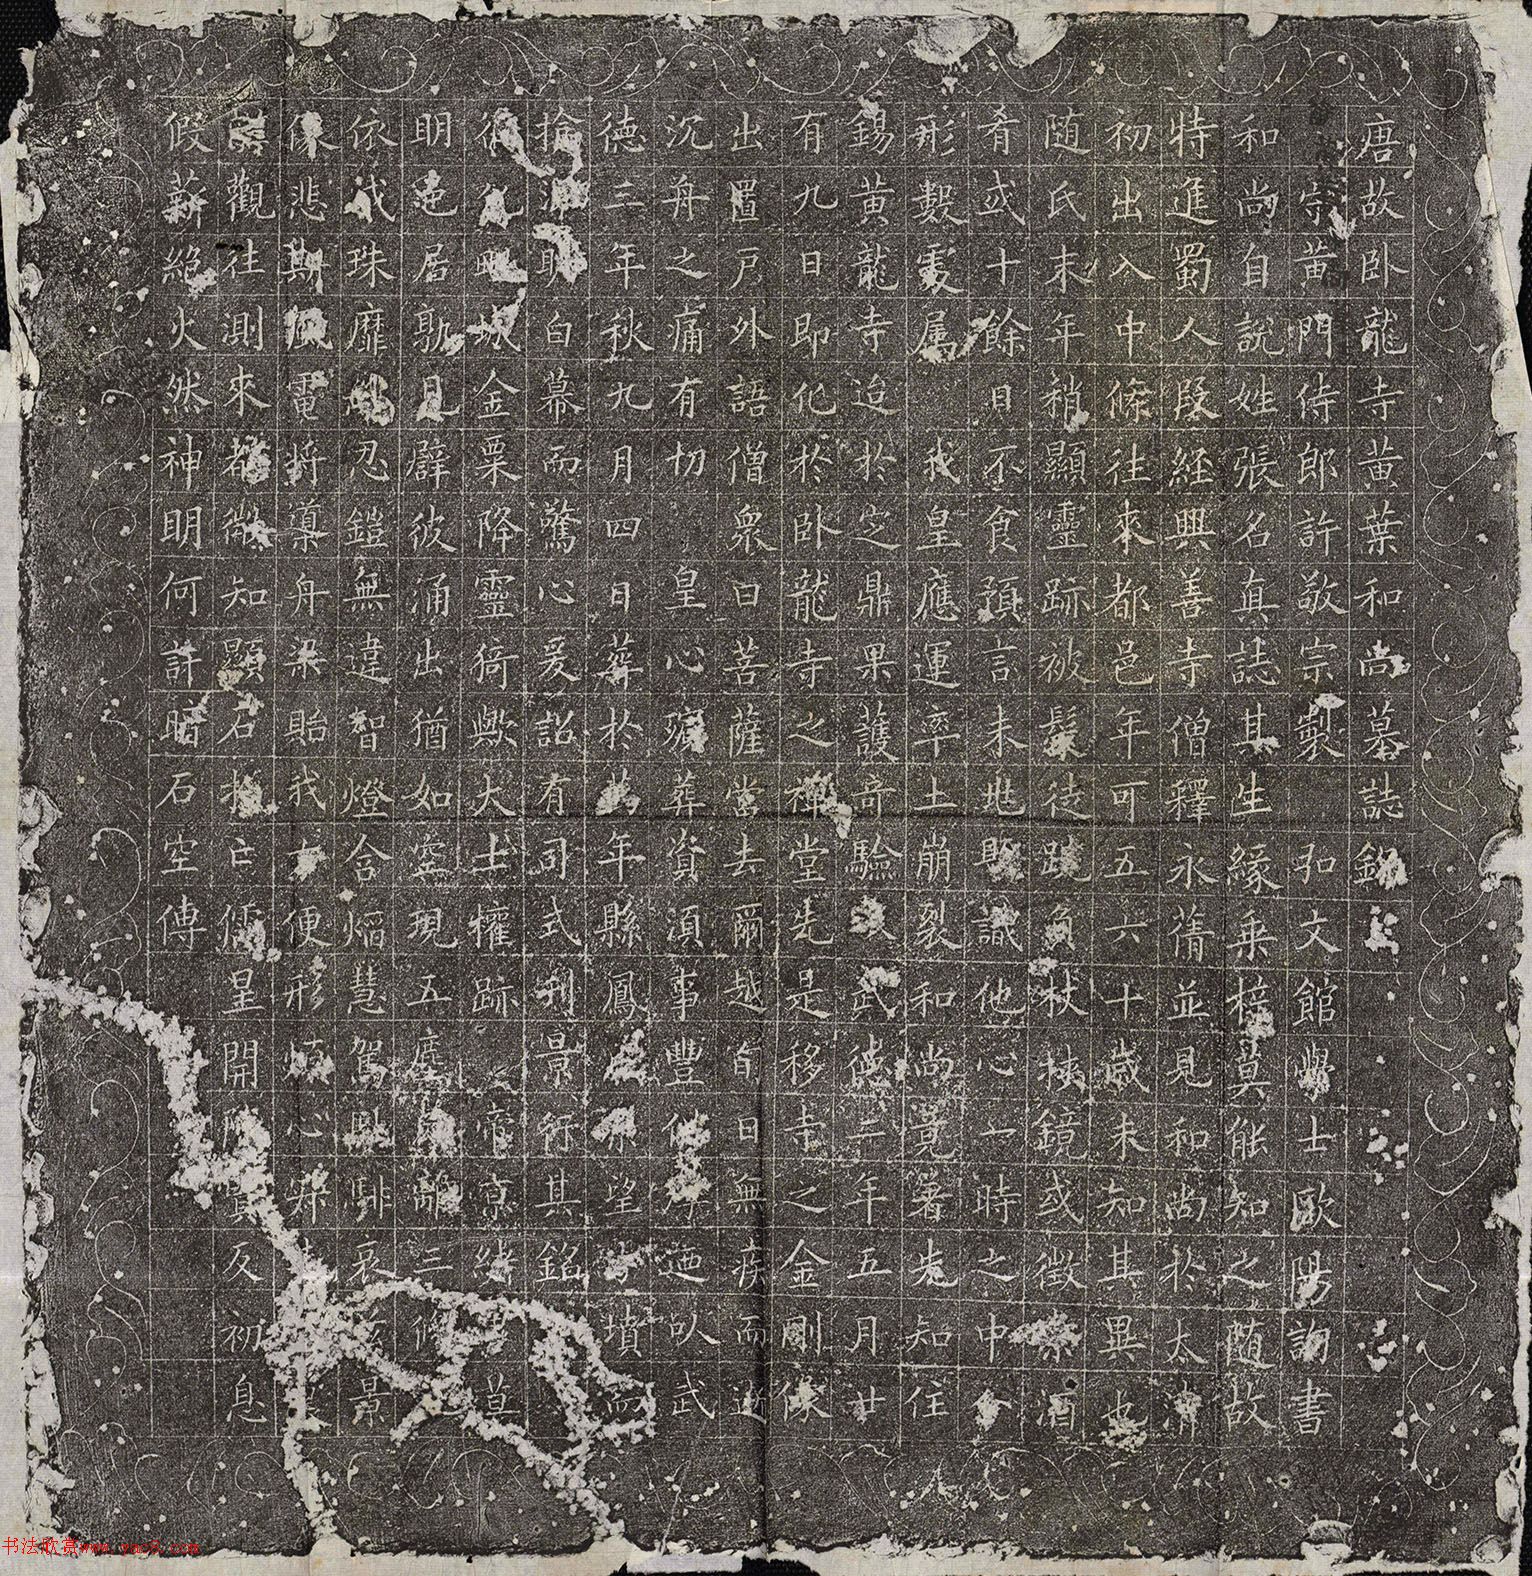 唐故卧龍寺黃葉和尚墓誌銘
宗黃門侍郎許敬宗製 弘文館學士歐陽詢書
和尚自說姓張名真誌其生緣乘梓莫能知之随故
特進蜀人段經興善寺僧釋永蒨並見和尚於太清
初出入中條往来都邑年可五六十歲未知其異也
随氏末年稍顯靈跡被髮徒跣負杖挾鏡或徵索酒
肴或十餘日不食預言未兆賒識他心一時之中分
形數處属 我皇應運率土崩裂和尚竟著先知住
錫黃龍寺迨於定鼎果護奇驗以武德二年五月廿
有九日即化於卧龍寺之禪堂先是移寺之金剛像
出置戶外語僧眾曰菩薩當去爾越旬日無疾而逝
沉舟之痛有切 皇心殯葬資須事豐供厚迺以武
德三年秋九月四日葬於萬年縣鳳 望 墳而
掩 白幕而驚心爰詔有司式刊景行其銘
金粟降靈猗歟大士權跡 帝京緒
明 居 見 辟彼涌出猶如空現五 離三
依我珠靡 忍鎧無違智燈含焰慧駕 騑哀 景
像悲斯風電將導舟梁貽我 便形 心
觀往測來都微知顯石 亡儒星開 反初息
假薪絕火然神明何許暗石空傳
书法欣赏www.yac8.com